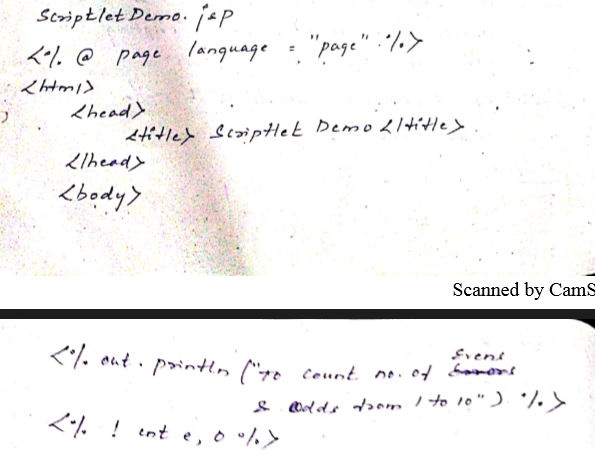 Scriptlet Demo. jsp
<% @ page language = "page" %>
<html>
<head>
<title> Scriptlet Demo </title>
</head>
<body>
Scanned by CamS
<% out . println ("To count no. of Evens
& Odds from 1 to 10") %>
<% ! int e, o %>